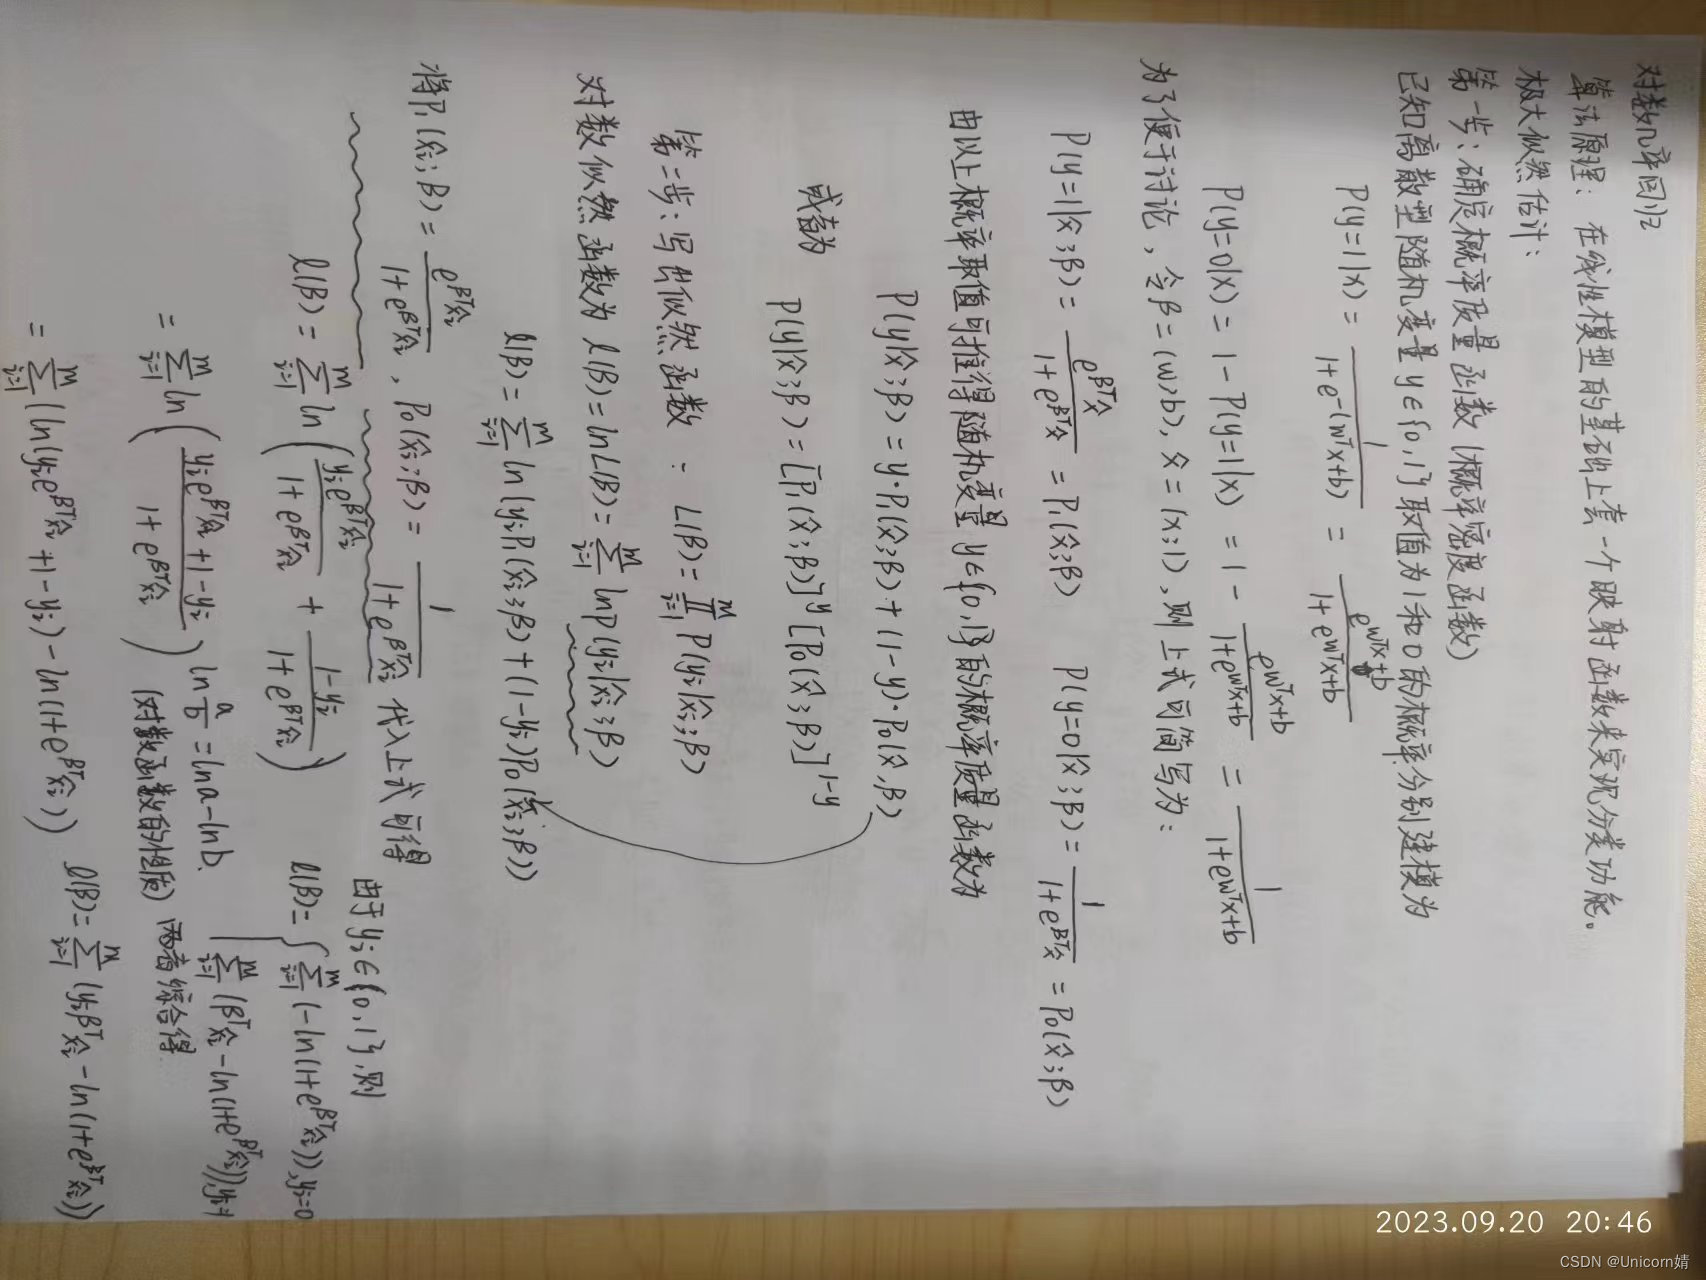 对数几率回归
算法原理： 在线性模型的基础上套一个映射函数来实现分类功能。
极大似然估计：
第一步：确定概率质量函数（概率密度函数）
已知离散型随机变量 y∈{0,1} 取值为1和0的概率分别建模为
P(y=1|x) = 1/(1+e^-(wᵀx+b)) = e^(wᵀx+b)/(1+e^(wᵀx+b))
P(y=0|x) = 1-P(y=1|x) = 1 - e^(wᵀx+b)/(1+e^(wᵀx+b)) = 1/(1+e^(wᵀx+b))
为了便于讨论，令β=(w;b)，x̂=(x;1)，则上式可简写为：
P(y=1|x̂;β) = e^(βᵀx̂)/(1+e^(βᵀx̂)) = P₁(x̂;β) P(y=0|x̂;β) = 1/(1+e^(βᵀx̂)) = P₀(x̂;β)
由以上概率取值可推得随机变量 y∈{0,1}的概率质量函数为
P(y|x̂;β) = y·P₁(x̂;β) + (1-y)·P₀(x̂,β)
或者为
P(y|x̂;β) = [P₁(x̂;β)]^y [P₀(x̂;β)]^(1-y)
第二步：写出似然函数 ： L(β) = ∏_(i=1)^m P(yᵢ|x̂ᵢ;β)
对数似然函数为 ℓ(β) = lnL(β) = ∑_(i=1)^m lnp(yᵢ|x̂ᵢ;β)
ℓ(β) = ∑_(i=1)^m ln(yᵢP₁(x̂ᵢ;β) + (1-yᵢ)P₀(x̂ᵢ;β))
将P₁(x̂ᵢ;β) = e^(βᵀx̂ᵢ)/(1+e^(βᵀx̂ᵢ)) ，P₀(x̂ᵢ;β) = 1/(1+e^(βᵀx̂ᵢ)) 代入上式可得
ℓ(β) = ∑_(i=1)^m ln(yᵢe^(βᵀx̂ᵢ)/(1+e^(βᵀx̂ᵢ)) + (1-yᵢ)/(1+e^(βᵀx̂ᵢ)))
= ∑_(i=1)^m ln((yᵢe^(βᵀx̂ᵢ)+1-yᵢ)/(1+e^(βᵀx̂ᵢ))) ln a/b = lna-lnb.
（对数函数的性质）
= ∑_(i=1)^m (ln(yᵢe^(βᵀx̂ᵢ)+1-yᵢ) - ln(1+e^(βᵀx̂ᵢ)))
由于yᵢ∈{0,1},则
ℓ(β) = { ∑_(i=1)^m (-ln(1+e^(βᵀx̂ᵢ))), yᵢ=0
∑_(i=1)^m (βᵀx̂ᵢ-ln(1+e^(βᵀx̂ᵢ))), yᵢ=1
两者综合得
ℓ(β) = ∑_(i=1)^m (yᵢβᵀx̂ᵢ-ln(1+e^(βᵀx̂ᵢ)))
2023.09.20 20:46
CSDN @Unicorn婧